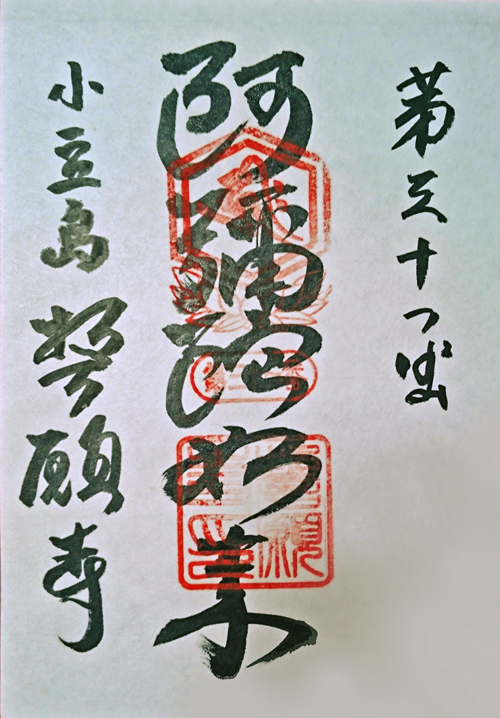 第三十一番
阿彌陀如来
小豆島 誓願寺